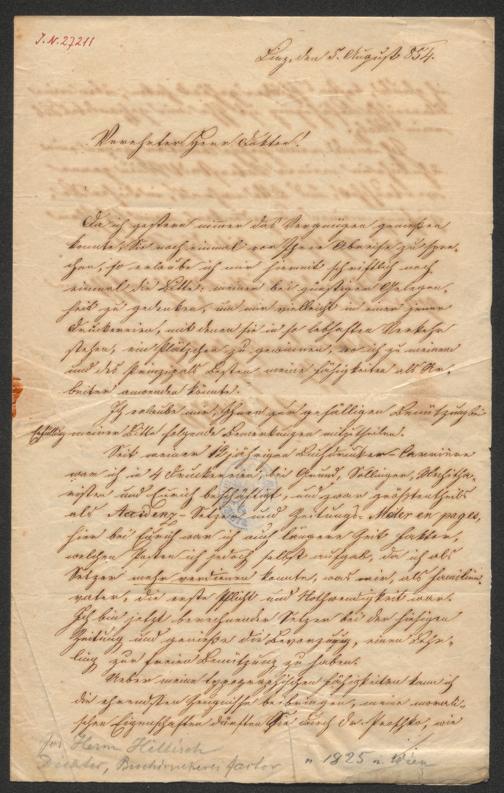 J.N. 27211
Linz, den 5. August 854.
Verehrter Herr Doktor!
Da ich gestern nimmer das Vergnügen genossen
konnte, Sie noch einmal vor Ihrer Abreise zu spre-
chen, so erlaube ich mir hiemit schriftlich noch
einmal die Bitte, meiner bei günstigen Gelegen-
heit zu gedenken, um mir vielleicht in einer jener
Druckereien, mit denen Sie in so lebhaften Verkehr
stehen, ein Plätzchen zu gewinnen, wo ich zu meinem
und des Prinzipals Besten meine Fähigkeiten als Ar-
beiter anwenden könnte.
Ich erlaube mir, Ihnen zur gefälligen Benützung bei
meiner Bitte folgende Bemerkungen mitzutheilen.
Seit meiner jährigen Buchdrucker-Carriere
war ich in 4 Druckereien, bei Grund, Sollinger, Mechitha-
risten und Eurich beschäftigt, und zwar größtentheils
als Accidenz-Setzer und Zeitungs-Meter en pages,
hier bei Eurich war ich auch längere Zeit Faktor,
welchen Posten ich jedoch selbst aufgab, da ich als
Setzer mehr verdienen konnte, was mir, als Familien-
vater, die erste Pflicht und Nothwendigkeit war.
Ich bin jetzt berechnender Setzer bei der hiesigen
Zeitung und genieße die Bevorzugung, einen Lehr-
ling zur freien Benützung zu haben.
Ueber meine typographischen Fähigkeiten kann ich
die ehrendsten Zeugnisse beibringen, meine morali-
schen Eigenschaften dürften Sie durch Dr. wie
Herm Hellisch
Dichter, Buchdruckerei Factor
1825 Wien